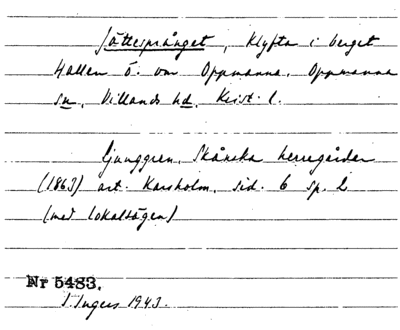 Jättesprånget, Klyfta i berget
Hallen Ö. om Oppmanna. Oppmanna
sn, Villands hd, Krist. l.
Ljunggren, Skånska herregårdar
(1863) art. Karsholm, sid. 6 sp. 2
(med lokalsägen)
Nr 5483.
I. Ingers 1943.